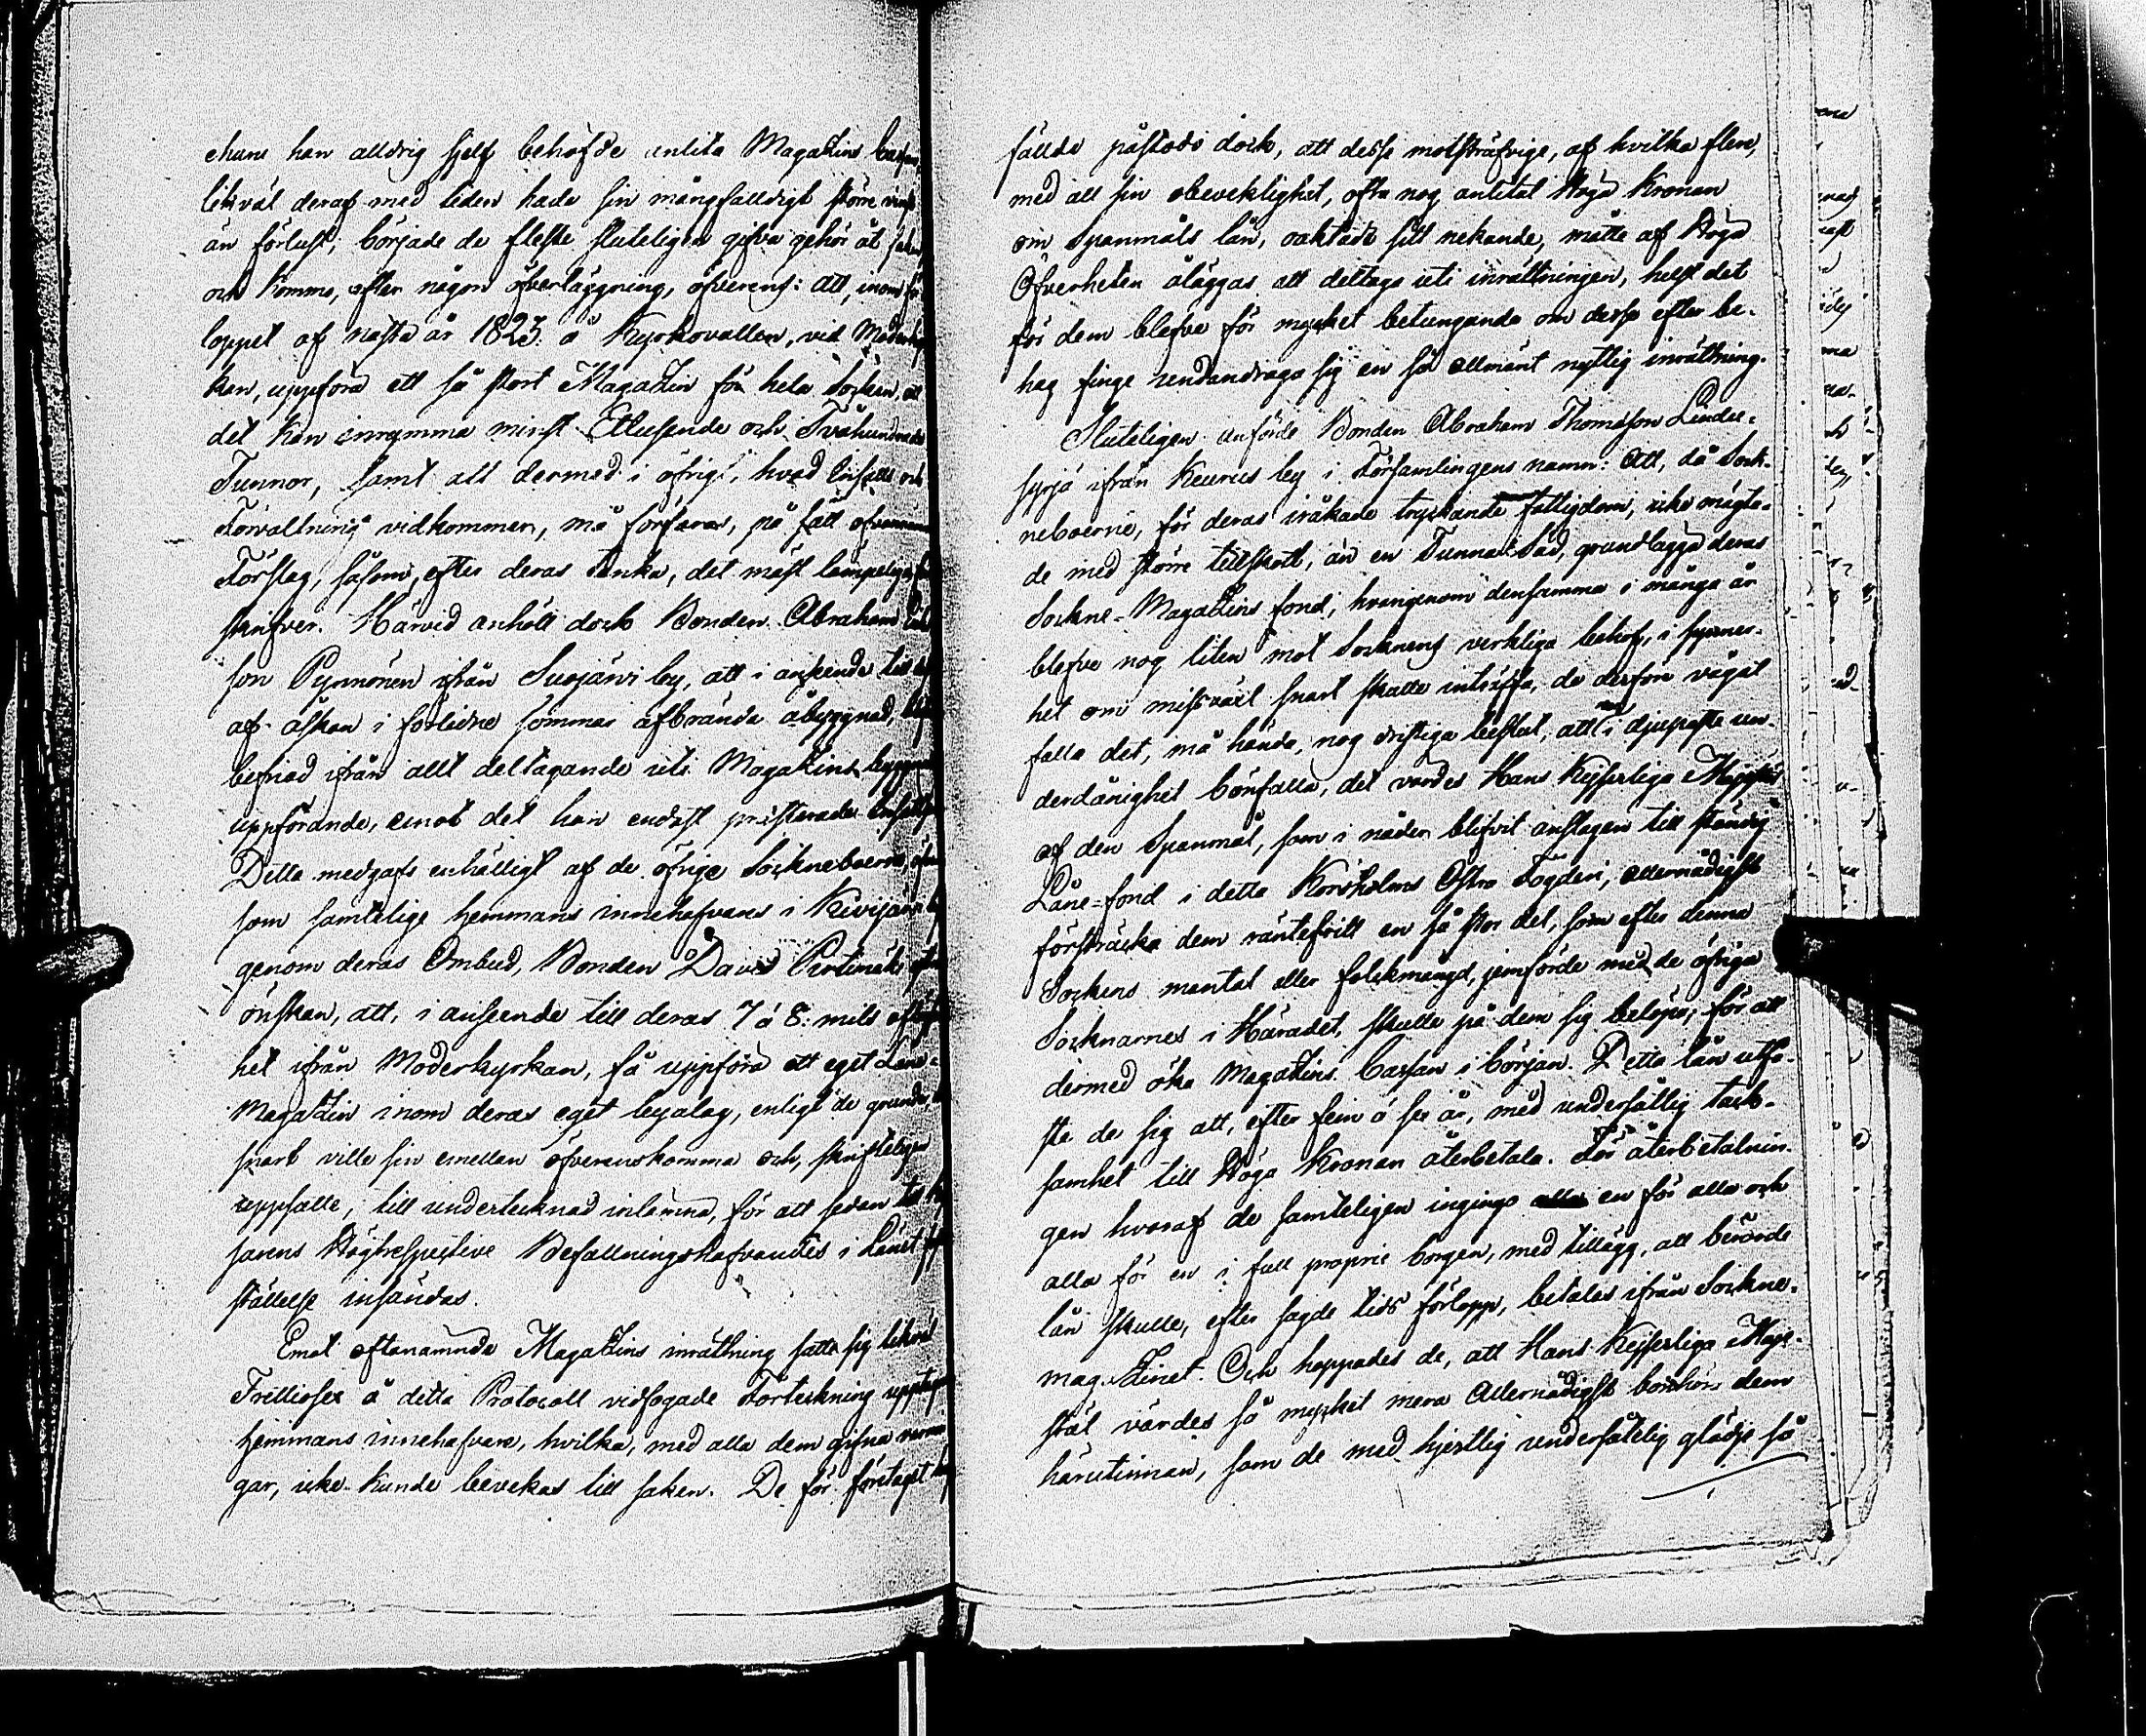 ehuru han alldrig sjelf behöfde anlita Magazins Cassan,
likväl deraf med tiden hade sin mångfalldigt större vinst
än förlust; började de fleste sluteligen gifva gehör åt saken,
och kommo, efter någon öfverläggning, öfverens: att, inom för
loppet af nästa år 1825. å Kyrkovallen, vid Moderkyr
kan, uppföra ett så stort Magazin för hela Socken, att
det kan inrymma minst Ettusende och Tvåhundrade
Tunnor, samt att dermed i öfrigt, hvad Insatts och
Förvaltning vidkommer, må förfaras, på sätt ofvannämnde
Förslag, såsom, efter deras tanka, det mäst lämpeliga före
skrifver. Härvid anhöll dock Bonden Abraham
son Pynnönen ifrån Suojärvi by, att i anseende till
af åskan i förledne sommar afbrända åbyggnad, blifva
befriad ifrån allt deltagande uti Magazins byggnadens
uppförande, emot det han endast prästerade
Detta medgafs enhälligt af de öfrige Sockneboerne,
som samtelige hemmans innehafvare i Kivijärvi by
genom deras Ombud, Bonden David
önskan, att, i anseende till deras 7 á 8: mils aflägsen
het ifrån Moderkyrkan, få uppföra ett eget Låne-
Magazin inom deras eget byalag, enligt de grunder, de
snart ville sin emellan öfverenskomma och, skrifteligen
uppsatte, till undertecknad inlämna, för att sedan till
Höghrespective Befallningshafvandes i Länet
ställelse insändas.
Emot oftanämnde Magazins inrättning satte sig likväl
Trettiosex å detta Protocoll vidfogade Förteckning upptagne
hemmans innehafvare, hvilka, med alla dem gifna varnin
gar, icke kunde bevekas till saken. De för företaget
sällde påstodo dock, att desse motsträfvige, af hvilka flere,
med all sin obeveklighet, ofta nog anlitat Höga Kronan
om Spanmåls lån, oaktadt sitt nekande, måtte af Höga
Öfverheten åläggas att deltaga uti inrättningen, helst det
för dem blefve för mycket betungande om desse efter be-
hag finge undandraga sig en så allmänt nyttig inrättning.
Sluteligen anförde Bonden Abraham Thomasson Lindee-
by i Församlingens namn: Att, då Sock-
neboerne, för deras iråkade tryckande fattigdom, icke mägta-
de med större tillskott, än en Tunna Säd, grundlägga deras
Sockne-Magazins fond, hvarigenom densamma i många år
blefve nog liten mot Socknens verkliga behof, i synner-
het om missväxt snart skulle inträffa, de derföre vågat
falla det, må hända, nog dristiga beslut, att i djupaste un-
derdånighet bönfalla, det värdes Hans Kejserliga Majestät
af den Spanmål, som i nåder blifvit anslagen till ständig
Låne-fond i detta Korsholms Östra Fögderi, allernådigst
försträcka dem räntefritt en så stor del, som efter denna
Sockens mantal eller folckmängd, jemförde med de öfriga
Socknarnes i Häradet, skulle på dem sig belöpa, för att
dermed öka Magazins Cassan i början. Detta lån utfä-
ste de sig att, efter fem á sex år, med undersåttlig tack-
samhet till Höga Kronan återbetala. För återbetalnin-
gen hvaraf de samteligen ingingo en för alla och
alla för en i full proprie borgen, med tillägg, att berörde
lån skulle, efter sagde tids förlopp, betalas ifrån Sockne-
magazinet. Och hoppades de, att Hans Kejserliga Maje-
stät värdes så mycket mera Allernådigst bönhöra dem
härutinnan, som de med hjertlig undersåtelig glädje så